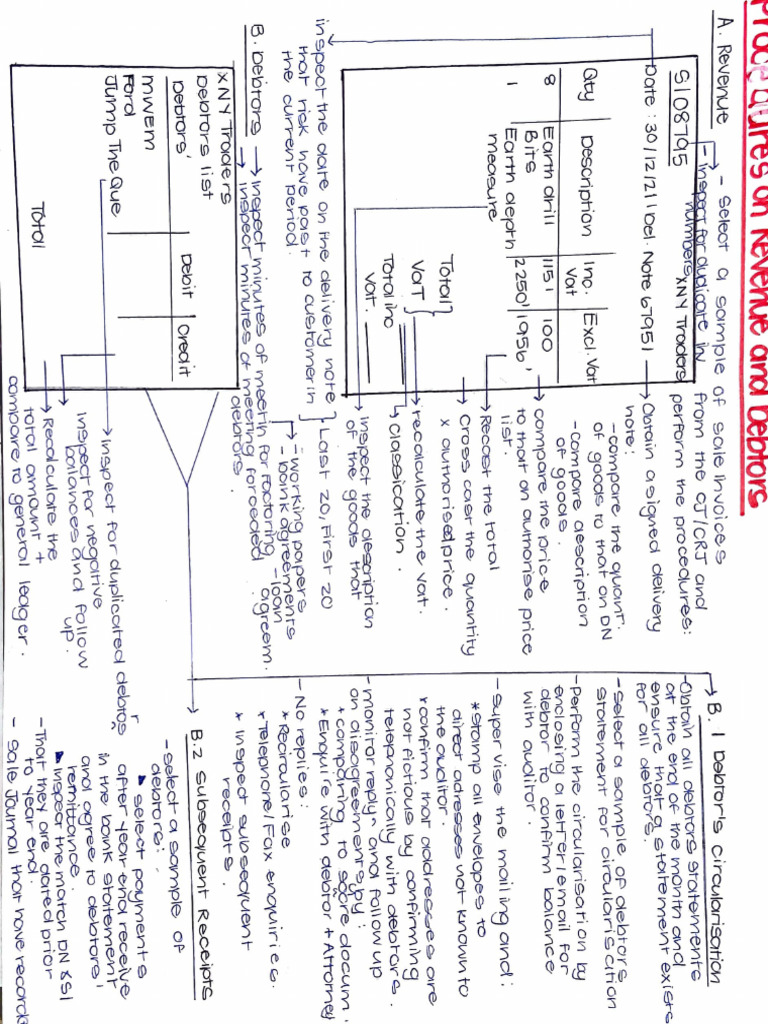 Procedures on Revenue and Debtors
A. Revenue
- Select a sample of sale invoices from the CJ/CRJ and perform the procedures:
- Inspect for duplicate in numbers
SI 08795
XNY Traders
Date : 30/12/21 | Del. Note 67951
Qty
Description
Inc. Vat
Excl. Vat
8
Earth drill Bits
1151
100
1
Earth depth measure
2250'
1956'
Total
VaT
Total inc Vat.
Obtain a signed delivery note:
-compare the quant. of goods to that on DN
-compare description of goods.
compare the price to that on authorise price list.
Recast the total
Cross cast the quantity x authorised price.
recalculate the vat.
classication.
inspect the description of the goods that
inspect the date on the delivery note
that risk have past to customer in
the current period.
Last 20, First 20
B. Debtors
inspect minutes of meetin for factoring agreem.
-working papers
-bank agreements
-loan
inspect minutes of meeting for ceded debtors.
XNY Traders
Debtors list
Debtors'
Debit
Credit
MWEM
Ford
Jump The Que
Total
Inspect for duplicated debtors
Inspect for negative
balances and follow
up.
Recalculate the
total amount +
compare to general leager.
B. 1 Debtor's circularisation
-Obtain all debtors statements
at the end of the month and
ensure that a statement exists
for all debtors.
-Select a sample of debtors
statement for circularisation
-Perform the circularisation by
enclosing a letter/email for
debtor to confirm balance
with auditor.
-Super vise the mailing and:
*Stamp all envelopes to
direct adresses not known to
the auditor.
*confirm that addresses are
not fictious by confirming
telephonically with debtors.
-monitor reply and follow up
on disagreements by:
* comparing to source docum.
*Enquire with debtor + Attorney
-No replies:
*Recircularise
*Telephone/Fax enquiries.
* Inspect subsequent
receipts.
B.2 Subsequent Receipts
-select a sample of
debtors:
select payments
after year end receive
in the bank statement
and agree to debtors'
remittance.
Inspect the match DN & SI
-That they are dated prior
to year end.
- Sale Journal that have record